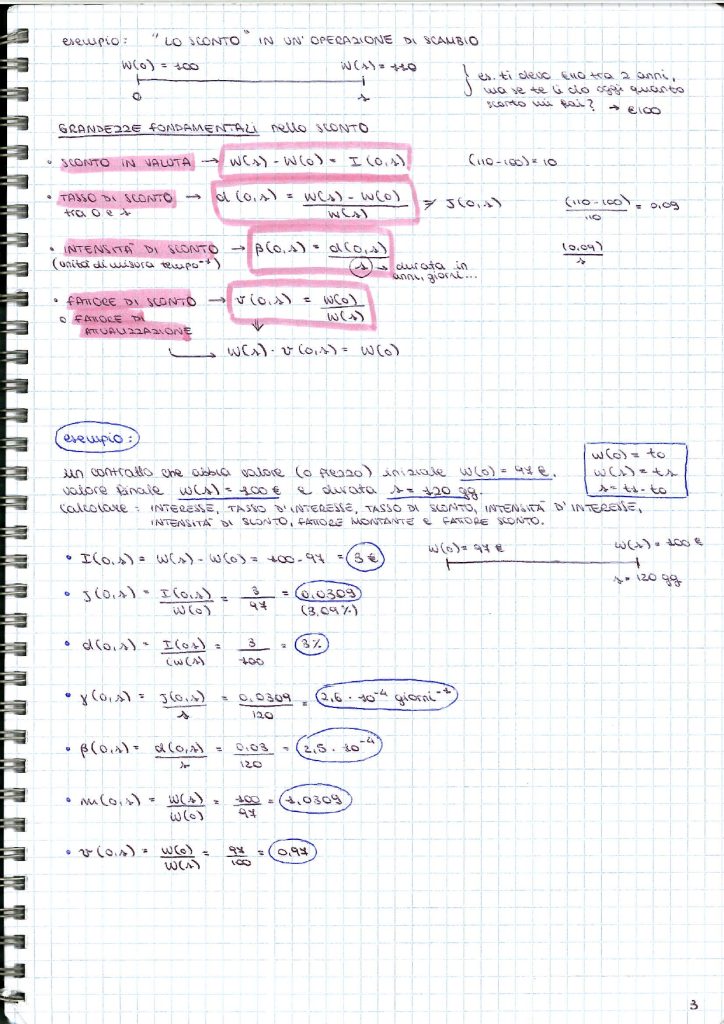 esempio: "LO SCONTO" IN UN'OPERAZIONE DI SCAMBIO
W(0) = 100 W(s) = 110
0 s
es. ti devo €110 tra 2 anni,
ma se te li do oggi quanto
sconto mi fai? → €100
GRANDEZZE FONDAMENTALI nello SCONTO
• SCONTO IN VALUTA → W(s) - W(0) = I(0,s) (110-100) = 10
• TASSO DI SCONTO → d(0,s) = W(s) - W(0) / W(s) ≠ J(0,s) (110-100) / 110 = 0,09
tra 0 e s
• INTENSITÀ DI SCONTO → β(0,s) = d(0,s) / s (0,09) / s
(unità di misura tempo⁻¹) → durata in
anni, giorni...
• FATTORE DI SCONTO → v(0,s) = W(0) / W(s)
O FATTORE DI
ATTUALIZZAZIONE
→ W(s) · v(0,s) = W(0)
esempio:
un contratto che abbia valore (o prezzo) iniziale W(0) = 97 €.
valore finale W(s) = 100 € e durata s = 120 gg
calcolare: INTERESSE, TASSO D'INTERESSE, TASSO DI SCONTO, INTENSITÀ D'INTERESSE,
INTENSITÀ DI SCONTO, FATTORE MONTANTE E FATTORE SCONTO.
W(0) = t0
W(s) = ts
s = ts - t0
• I(0,s) = W(s) - W(0) = 100 - 97 = 3 €
W(0) = 97 € W(s) = 100 €
s = 120 gg
• J(0,s) = I(0,s) / W(0) = 3 / 97 = 0,0309
(3,09%)
• d(0,s) = I(0,s) / W(s) = 3 / 100 = 3%
• γ(0,s) = J(0,s) / s = 0,0309 / 120 = 2,6 · 10⁻⁴ giorni⁻¹
• β(0,s) = d(0,s) / s = 0,03 / 120 = 2,5 · 10⁻⁴
• m(0,s) = W(s) / W(0) = 100 / 97 = 1,0309
• v(0,s) = W(0) / W(s) = 97 / 100 = 0,97
3